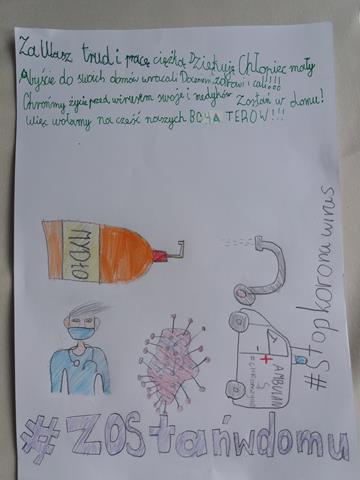 Za Wasz trud i pracę ciężką Dziękuję Chłopiec mały
Abyście do swoich domów wracali Docenieni, zdrowi i cali!!!
Chrońmy życie przed wirusem swoje i medyków Zostań w domu!
Więc wołamy na cześć naszych BOHATERÓW!!!
MYDŁO
AMBULAN
S
#stopkoronawirus
#ZOStańwdomu